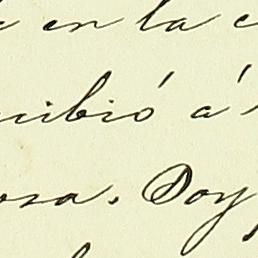 en la
cibió á
osa. Doy